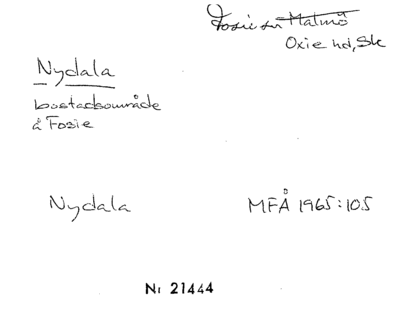 Fosie sn Malmö
Oxie hd, Sk
Nydala
bostadsområde
å Fosie
Nydala
MFÅ 1965:105
Nr 21444